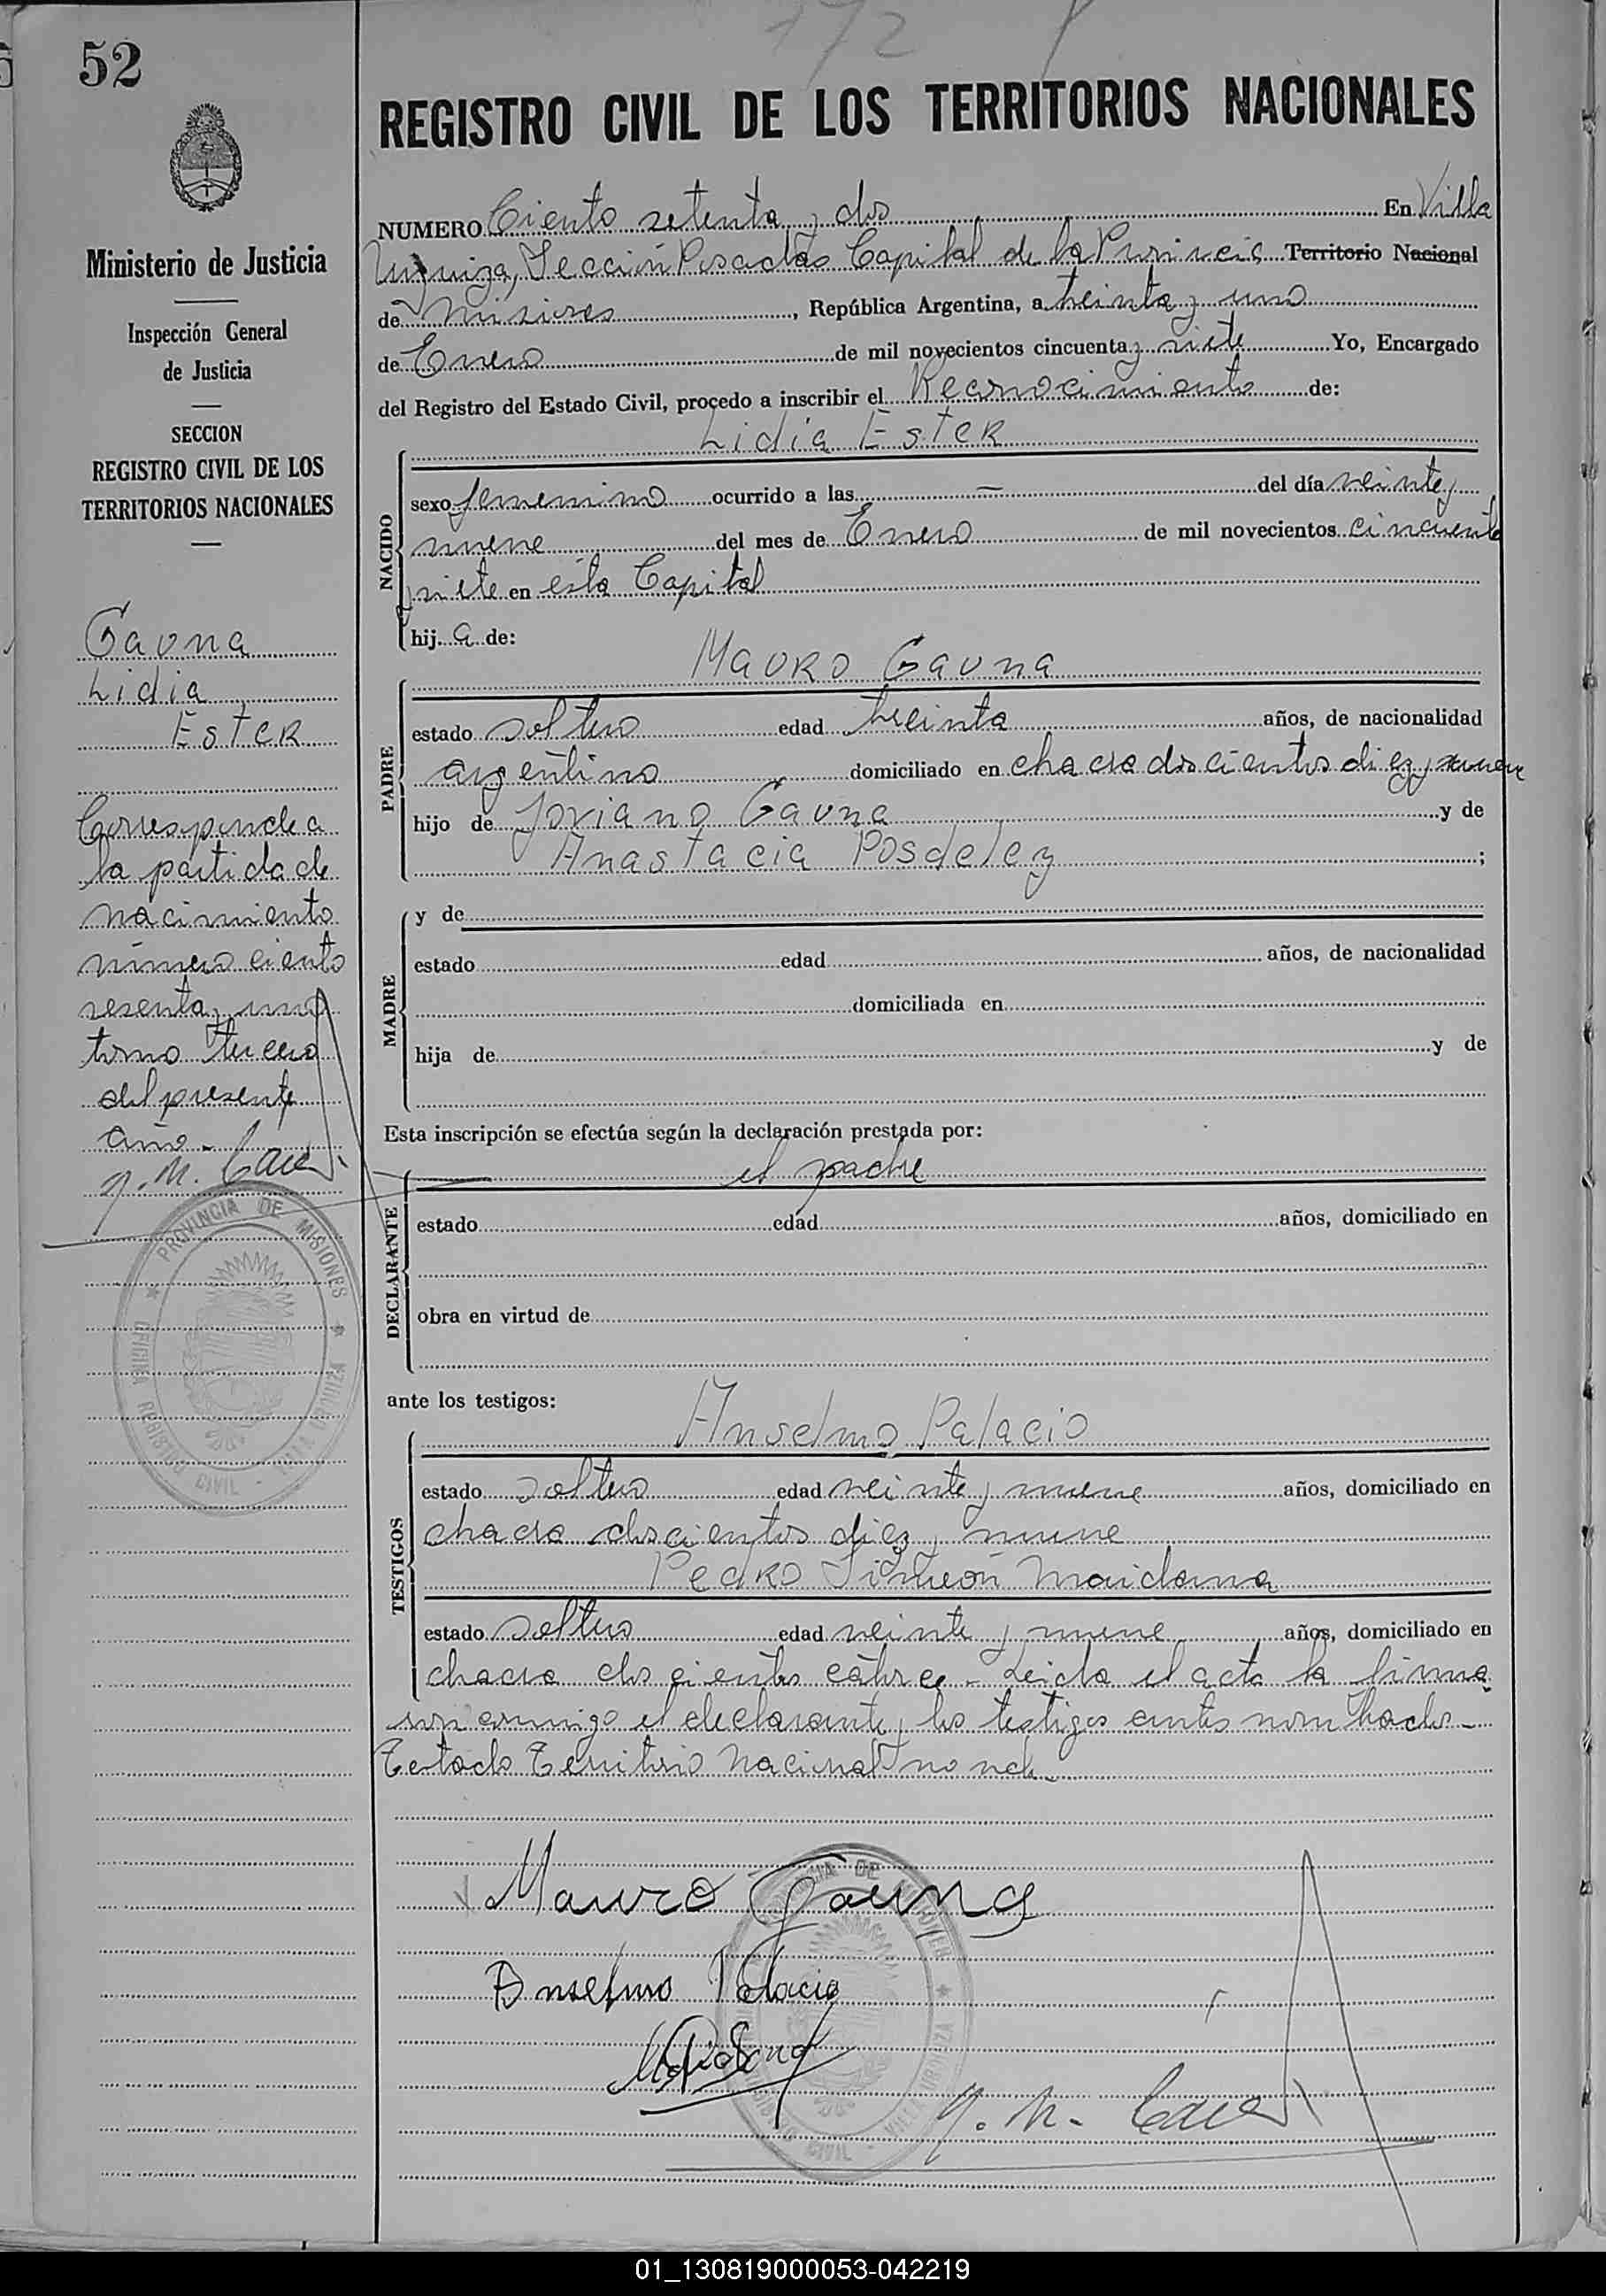 172
52
REGISTRO CIVIL DE LOS TERRITORIOS NACIONALES
Ministerio de Justicia
Inspección General
de Justicia
SECCION
REGISTRO CIVIL DE LOS
TERRITORIOS NACIONALES
Gauna
Lidia
Ester
Corresponde a
la partida de
nacimiento
número ciento
sesenta y uno
tomo tercero
del presente
año.-
PROVINCIA DE MISIONES
OFICINA REGISTRO CIVIL - VILLA URQUIZA
NUMERO Ciento setenta y dos En Villa
Urquiza, Sección Posadas Capital de la Provincia Territorio Nacional
de Misiones, República Argentina, a treinta y uno
de Enero de mil novecientos cincuenta y siete Yo, Encargado
del Registro del Estado Civil, procedo a inscribir el Reconocimiento de:
Lidia Ester
NACIDO
sexo femenino ocurrido a las — del día veinte y
nueve del mes de Enero de mil novecientos cincuenta
y siete en esta Capital
hija de:
Mauro Gauna
PADRE
estado soltero edad treinta años, de nacionalidad
argentino domiciliado en chacra doscientos diez y nueve
hijo de Joviano Gauna y de
Anastacia Posdeley;
MADRE
y de
estado edad años, de nacionalidad
domiciliada en
hija de y de
Esta inscripción se efectúa según la declaración prestada por:
el padre
DECLARANTE
estado edad años, domiciliado en
obra en virtud de
ante los testigos:
Anselmo Palacio
TESTIGOS
estado soltero edad veinte y nueve años, domiciliado en
chacra doscientos diez y nueve
Pedro Simeón Maidana
estado soltero edad veinte y nueve años, domiciliado en
chacra doscientos catorce - Leida el acta la firma
ron conmigo el declarante y los testigos antes nombrados -
Testado Territorio Nacional no vale
Mauro Gauna
Anselmo Palacio
Maidana
PROVINCIA DE MISIONES
REGISTRO CIVIL - VILLA URQUIZA
01_130819000053-042219